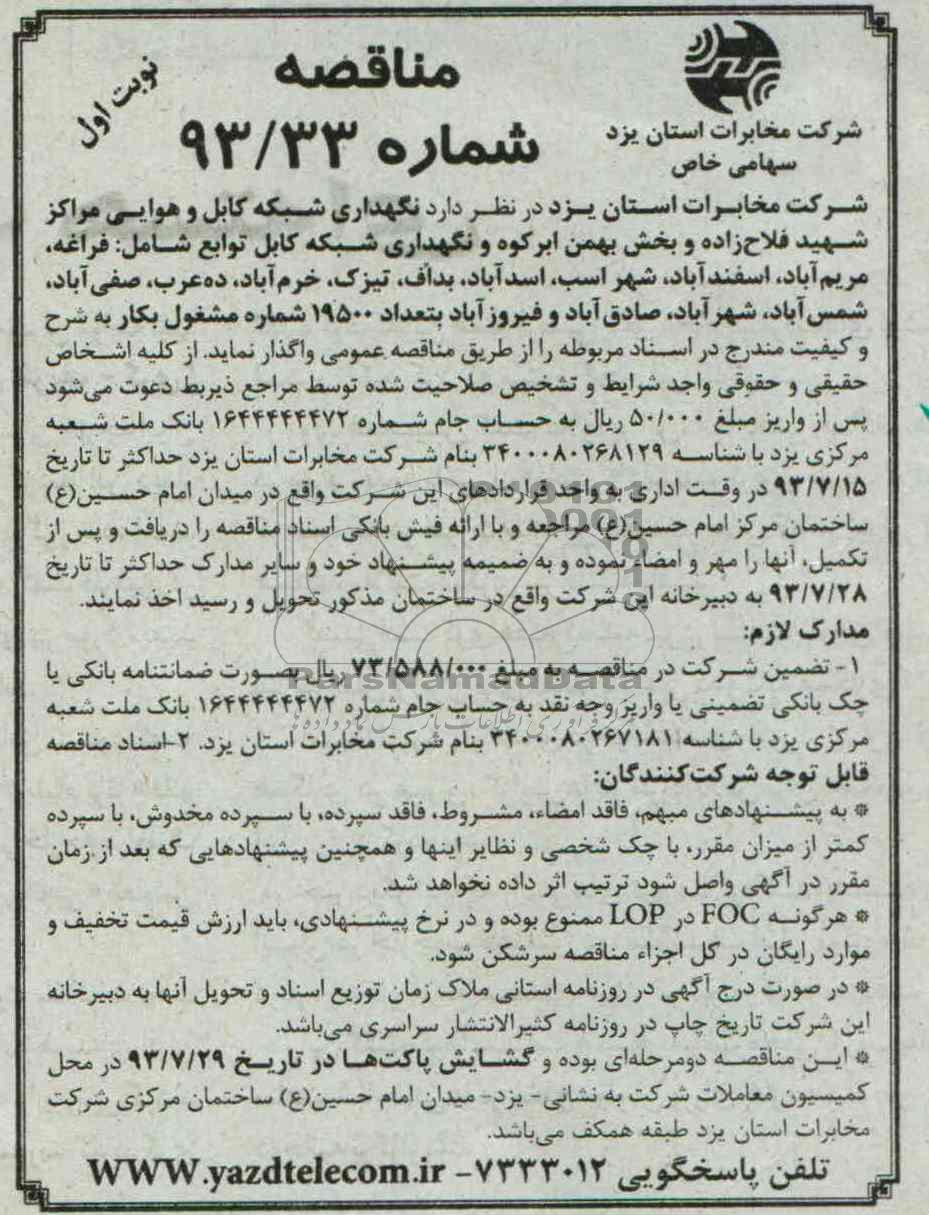 مناقصه
شماره ۹۳/۳۳
نوبت اول
شرکت مخابرات استان یزد
سهامی خاص
شرکت مخابرات استان یزد در نظر دارد نگهداری شبکه کابل و هوایی مراکز
شهید فلاح‌زاده و بخش بهمن ابرکوه و نگهداری شبکه کابل توابع شامل: فراغه،
مریم‌آباد، اسفندآباد، شهر اسب، اسدآباد، بداف، تیزک، خرم‌آباد، ده‌عرب، صفی‌آباد،
شمس‌آباد، شهرآباد، صادق‌آباد و فیروزآباد بتعداد ۱۹۵۰۰ شماره مشغول بکار به شرح
و کیفیت مندرج در اسناد مربوطه را از طریق مناقصه عمومی واگذار نماید. از کلیه اشخاص
حقیقی و حقوقی واجد شرایط و تشخیص صلاحیت شده توسط مراجع ذیربط دعوت می‌شود
پس از واریز مبلغ ۵۰/۰۰۰ ریال به حساب جام شماره ۱۶۴۴۴۴۴۴۷۲ بانک ملت شعبه
مرکزی یزد با شناسه ۳۴۰۰۰۸۰۲۶۸۱۲۹ بنام شرکت مخابرات استان یزد حداکثر تا تاریخ
۹۳/۷/۱۵ در وقت اداری به واحد قراردادهای این شرکت واقع در میدان امام حسین(ع)
ساختمان مرکز امام حسین(ع) مراجعه و با ارائه فیش بانکی اسناد مناقصه را دریافت و پس از
تکمیل، آنها را مهر و امضاء نموده و به ضمیمه پیشنهاد خود و سایر مدارک حداکثر تا تاریخ
۹۳/۷/۲۸ به دبیرخانه این شرکت واقع در ساختمان مذکور تحویل و رسید اخذ نمایند.
مدارک لازم:
۱- تضمین شرکت در مناقصه به مبلغ ۷۳/۵۸۸/۰۰۰ ریال بصورت ضمانتنامه بانکی یا
چک بانکی تضمینی یا واریز وجه نقد به حساب جام شماره ۱۶۴۴۴۴۴۴۷۲ بانک ملت شعبه
مرکزی یزد با شناسه ۳۴۰۰۰۸۰۲۶۷۱۸۱ بنام شرکت مخابرات استان یزد. ۲-اسناد مناقصه
قابل توجه شرکت‌کنندگان:
* به پیشنهادهای مبهم، فاقد امضاء، مشروط، فاقد سپرده، با سپرده مخدوش، با سپرده
کمتر از میزان مقرر، با چک شخصی و نظایر اینها و همچنین پیشنهادهایی که بعد از زمان
مقرر در آگهی واصل شود ترتیب اثر داده نخواهد شد.
* هرگونه FOC در LOP ممنوع بوده و در نرخ پیشنهادی، باید ارزش قیمت تخفیف و
موارد رایگان در کل اجزاء مناقصه سرشکن شود.
* در صورت درج آگهی در روزنامه استانی ملاک زمان توزیع اسناد و تحویل آنها به دبیرخانه
این شرکت تاریخ چاپ در روزنامه کثیرالانتشار سراسری می‌باشد.
* این مناقصه دومرحله‌ای بوده و گشایش پاکت‌ها در تاریخ ۹۳/۷/۲۹ در محل
کمیسیون معاملات شرکت به نشانی- یزد- میدان امام حسین(ع) ساختمان مرکزی شرکت
مخابرات استان یزد طبقه همکف می‌باشد.
تلفن پاسخگویی ۷۳۳۳۰۱۲- WWW.yazdtelecom.ir
ParsNamadData